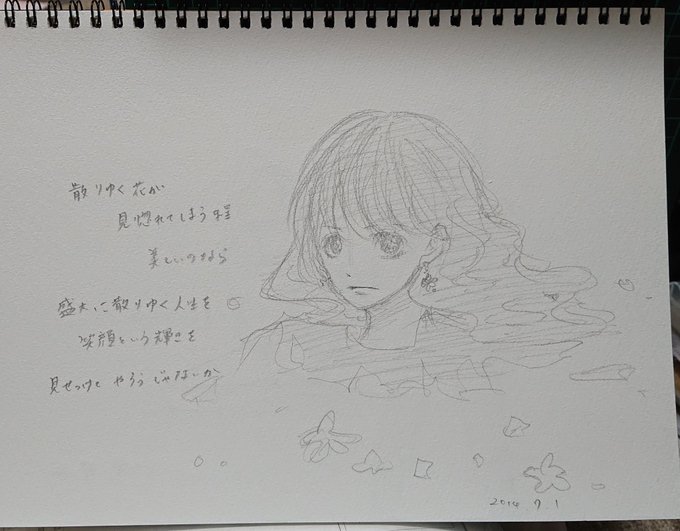 散りゆく花が
見惚れてしまう程
美しいのなら
盛大に散りゆく人生を
笑顔という輝きを
見せつけてやろうじゃないか
2014 7 1